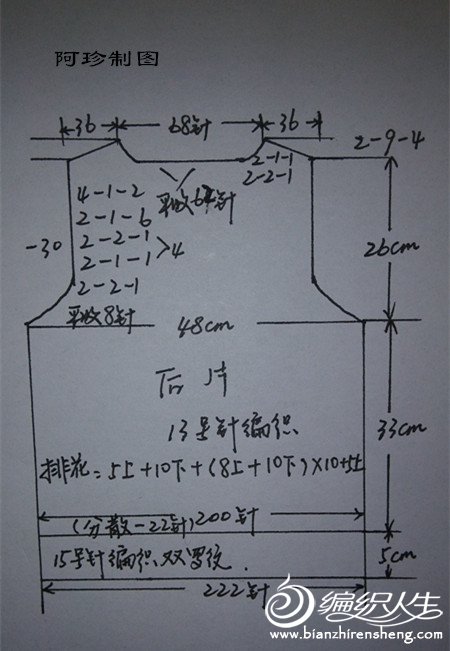 阿珍制图
36 68针 36
2-9-4
2-1-1
2-2-1
平收62针
4-1-2
2-1-6
2-2-1
2-1-1 >4
2-2-1
平收8针
-30
26cm
48cm
后片
13号针编织
33cm
排花=5上+10下+(8上+10下)×10+5上
200针
(分散-22针)
15号针编织双罗纹.
5cm
222针
编织人生
www.bianzhirensheng.com